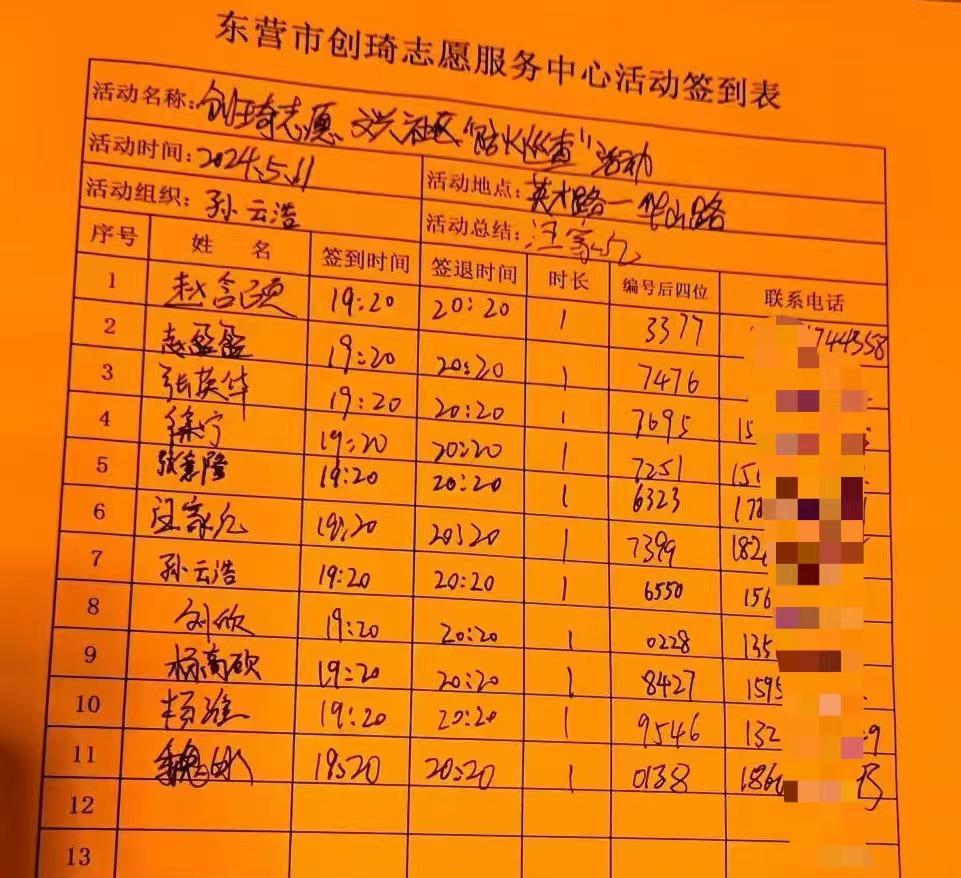 东营市创琦志愿服务中心活动签到表
活动名称: 创琦志愿 文兴社区"防火巡查"活动
活动时间: 2024.5.11 活动地点: 英才路—华山路
活动组织: 孙云浩 活动总结: 汪家亿
序号 姓 名 签到时间 签退时间 时长 编号后四位 联系电话
1 19:20 20:20 1 3377 744358
2 赵盈盈 19:20 20:20 1 7476
3 张英华 19:20 20:20 1 7695 15
4 徐宁 19:20 20:20 1 7251 15
5 19:20 20:20 1 6323 17
6 汪家亿 19:20 20:20 1 7399 182
7 孙云浩 19:20 20:20 1 6550 156
8 刘欣 19:20 20:20 1 0228 135
9 杨高硕 19:20 20:20 1 8427 1595
10 19:20 20:20 1 9546 132 9
11 19:20 20:20 1 0138 186
12
13